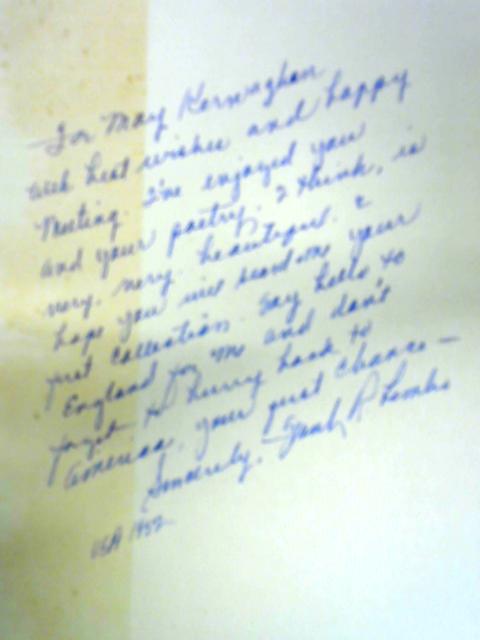 For May Kernaghan
with best wishes and happy
meeting. I've enjoyed you
and your poetry, I think, is
very, very beautiful. I
hope you will send me your
first collection. Say hello to
England for me and don't
forget to hurry back to
America, your first chance —
Sincerely,
USA 1952